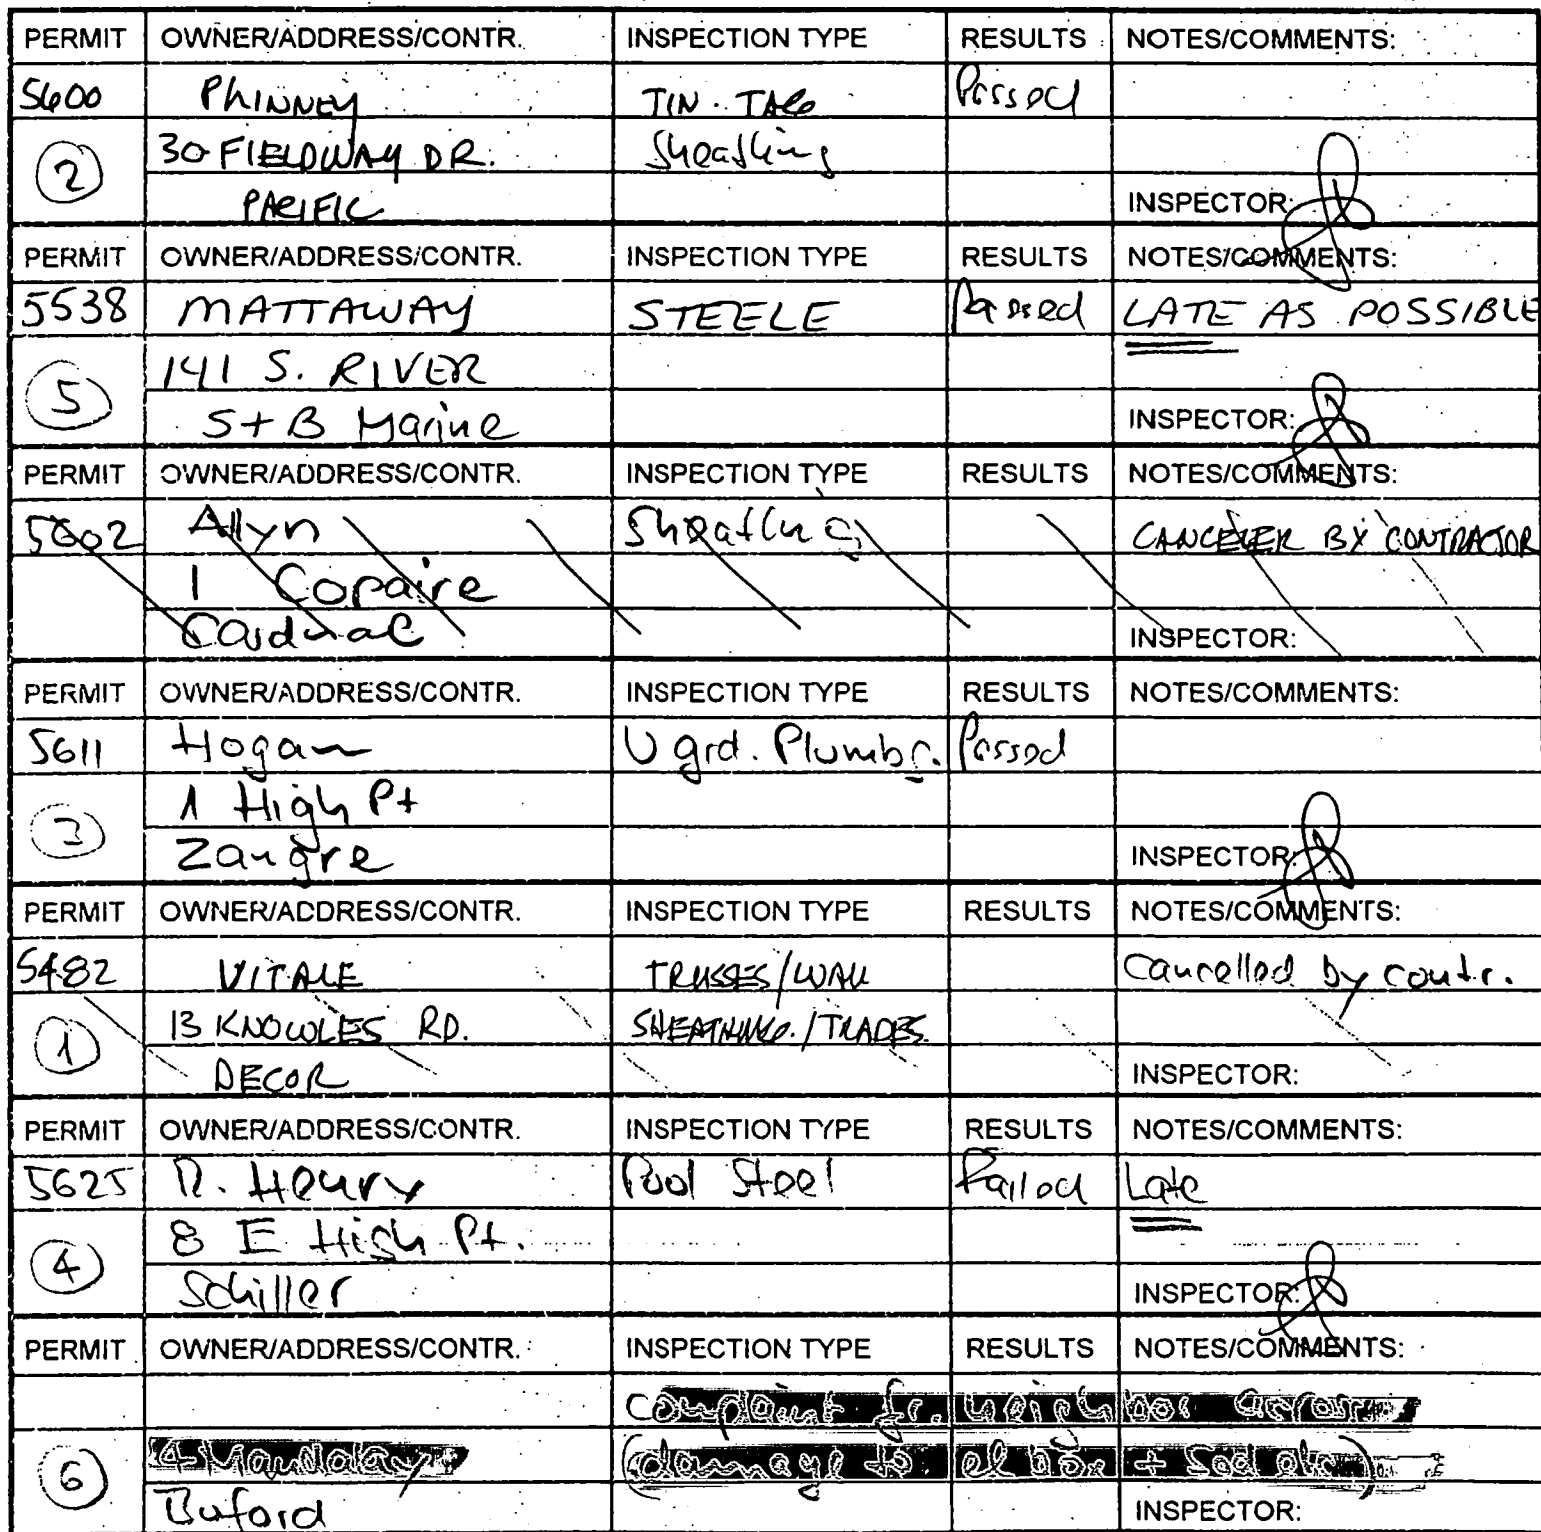 PERMIT OWNER/ADDRESS/CONTR. INSPECTION TYPE RESULTS NOTES/COMMENTS:
5600 PHINNEY TIN TAG Passed
2 30 FIELDWAY DR. Sheathing
PACIFIC INSPECTOR:
PERMIT OWNER/ADDRESS/CONTR. INSPECTION TYPE RESULTS NOTES/COMMENTS:
5538 MATTAWAY STEELE Passed LATE AS POSSIBLE
5 141 S. RIVER
S+B Marine INSPECTOR:
PERMIT OWNER/ADDRESS/CONTR. INSPECTION TYPE RESULTS NOTES/COMMENTS:
5602 Allyn Sheathing CANCELED BY CONTRACTOR
1 Copaire
Cardinal INSPECTOR:
PERMIT OWNER/ADDRESS/CONTR. INSPECTION TYPE RESULTS NOTES/COMMENTS:
5611 Hogan U grd. Plumbg. Passed
3 1 High Pt
Zangre INSPECTOR:
PERMIT OWNER/ADDRESS/CONTR. INSPECTION TYPE RESULTS NOTES/COMMENTS:
5482 VITALE TRUSSES/WALL Cancelled by contr.
1 13 KNOWLES RD. SHEATHING/TRADES
DECOR INSPECTOR:
PERMIT OWNER/ADDRESS/CONTR. INSPECTION TYPE RESULTS NOTES/COMMENTS:
5625 R. Henry Pool Steel Failed Late
4 8 E High Pt.
Schiller INSPECTOR:
PERMIT OWNER/ADDRESS/CONTR. INSPECTION TYPE RESULTS NOTES/COMMENTS:
Complaint fr. neighbor across
6 4 Mandalay (damage to el box + sod etc)
Buford INSPECTOR: